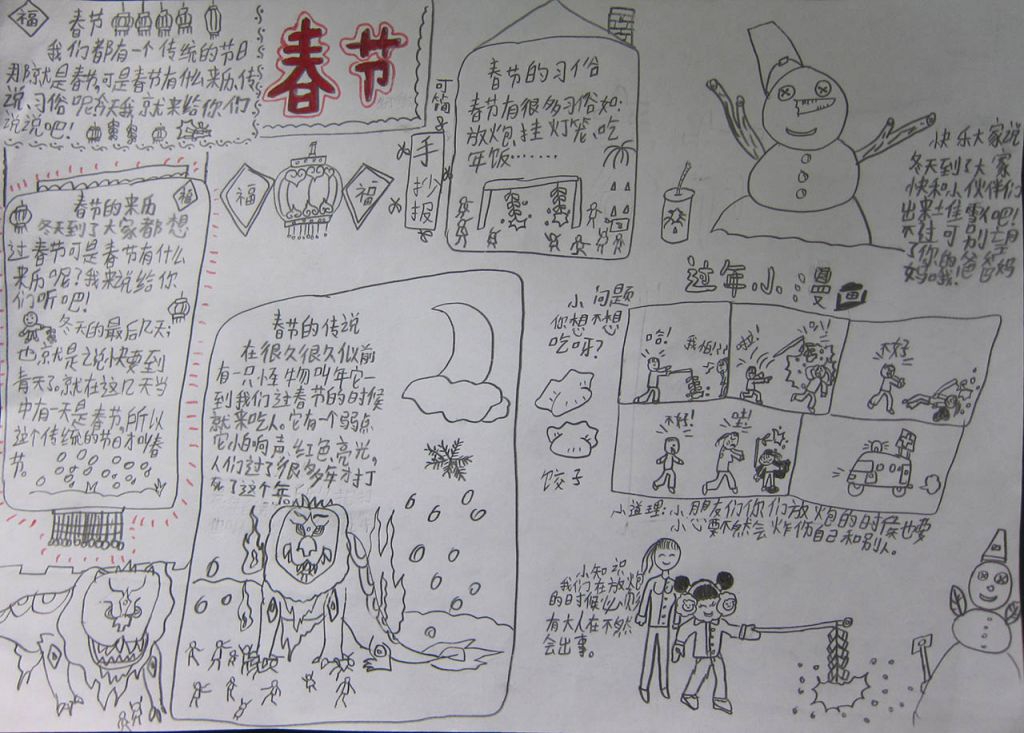 福
春节
我们都有一个传统的节日
那就是春节,可是春节有什么来历、传
说、习俗呢?今天我就来给你们
说说吧!
春节
可简
手抄报
福
福
春节的习俗
春节有很多习俗如:
放炮、挂灯笼、吃
年饭……
快乐大家说
冬天到了大家
快和小伙伴们
出来堆雪人吧!
不过可别
了你的爸爸妈
妈哦!
福
春节的来历
冬天到了大家都想
过春节可是春节有什么
来历呢?我来说给你
们听吧!
冬天的最后几天,
也就是说快要到
青天了。就在这几天当
中有一天是春节,所以
这个传统的节日才叫春
节。
春节的传说
在很久很久似前
有一只怪物叫年它一
到我们过春节的时候
就来吃人。它有一个弱点
它怕响声、红色、亮光。
人们过了很多年才打
死了这个年。
小问题
你想不想
吃呀?
饺子
过年小漫画
哈!
我怕!
啦!
不好
不好!
哇!
小道理:小朋友们你们放炮的时候也要
小心要不然会炸伤自己和别人。
小知识
我们在放炮
的时候必须
有大人在不然
会出事。